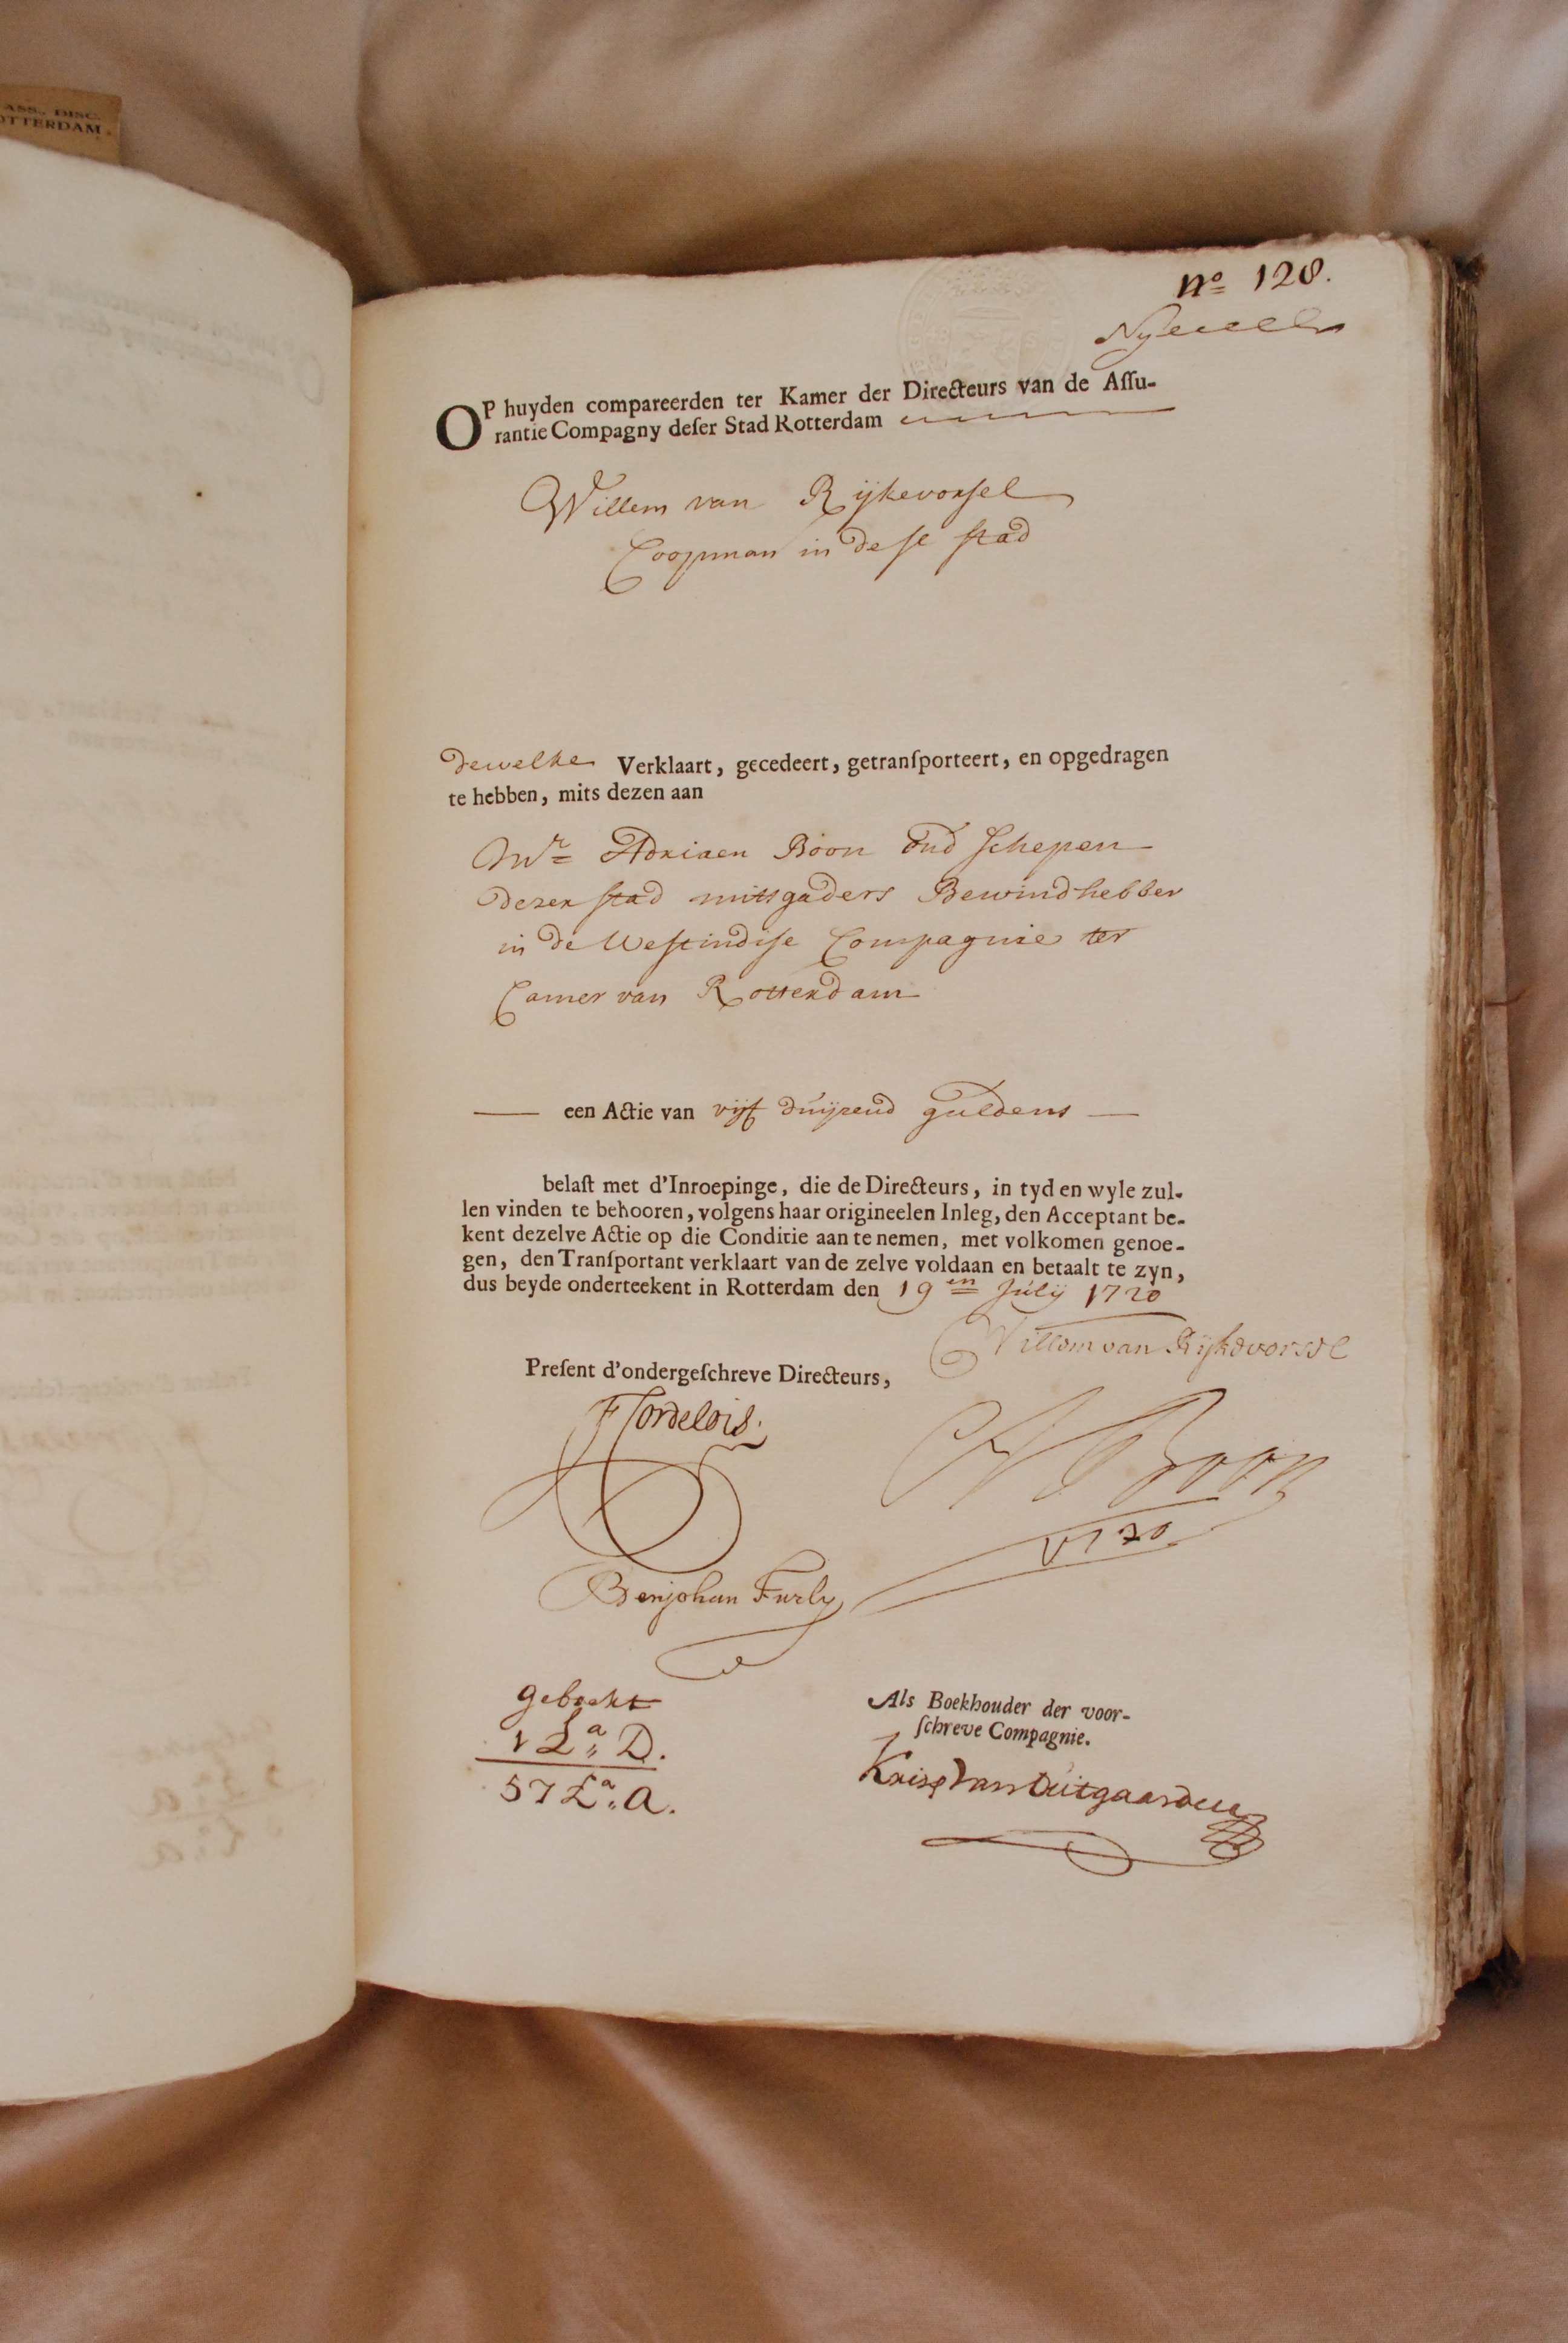 ASS., DISC.
OTTERDAM.
nº 128.
OP huyden compareerden ter Kamer der Directeurs van de Aſſu-
rantie Compagny deſer Stad Rotterdam
Willem van Rijkevorſel
Coopman in deſe ſtad
dewelke Verklaart, gecedeert, getranſporteert, en opgedragen
te hebben, mits dezen aan
Mr Adriaen Boon Oud Schepen
dezer ſtad mitsgaders Bewindhebber
in de Weſtindiſe Compagnie ter
Camer van Rotterdam
een Actie van vijf duijzend guldens
belaſt met d'Inroepinge, die de Directeurs, in tyd en wyle zul-
len vinden te behooren, volgens haar origineelen Inleg, den Acceptant be-
kent dezelve Actie op die Conditie aan te nemen, met volkomen genoe-
gen, den Tranſportant verklaart van de zelve voldaan en betaalt te zyn,
dus beyde onderteekent in Rotterdam den 19en Julij 1720
Willem van Rijkevorsel
Preſent d'ondergeſchreve Directeurs,
A Boon
1720
Benjohan Furly
geboekt
1 La D.
57 La A.
Als Boekhouder der voor-
ſchreve Compagnie.